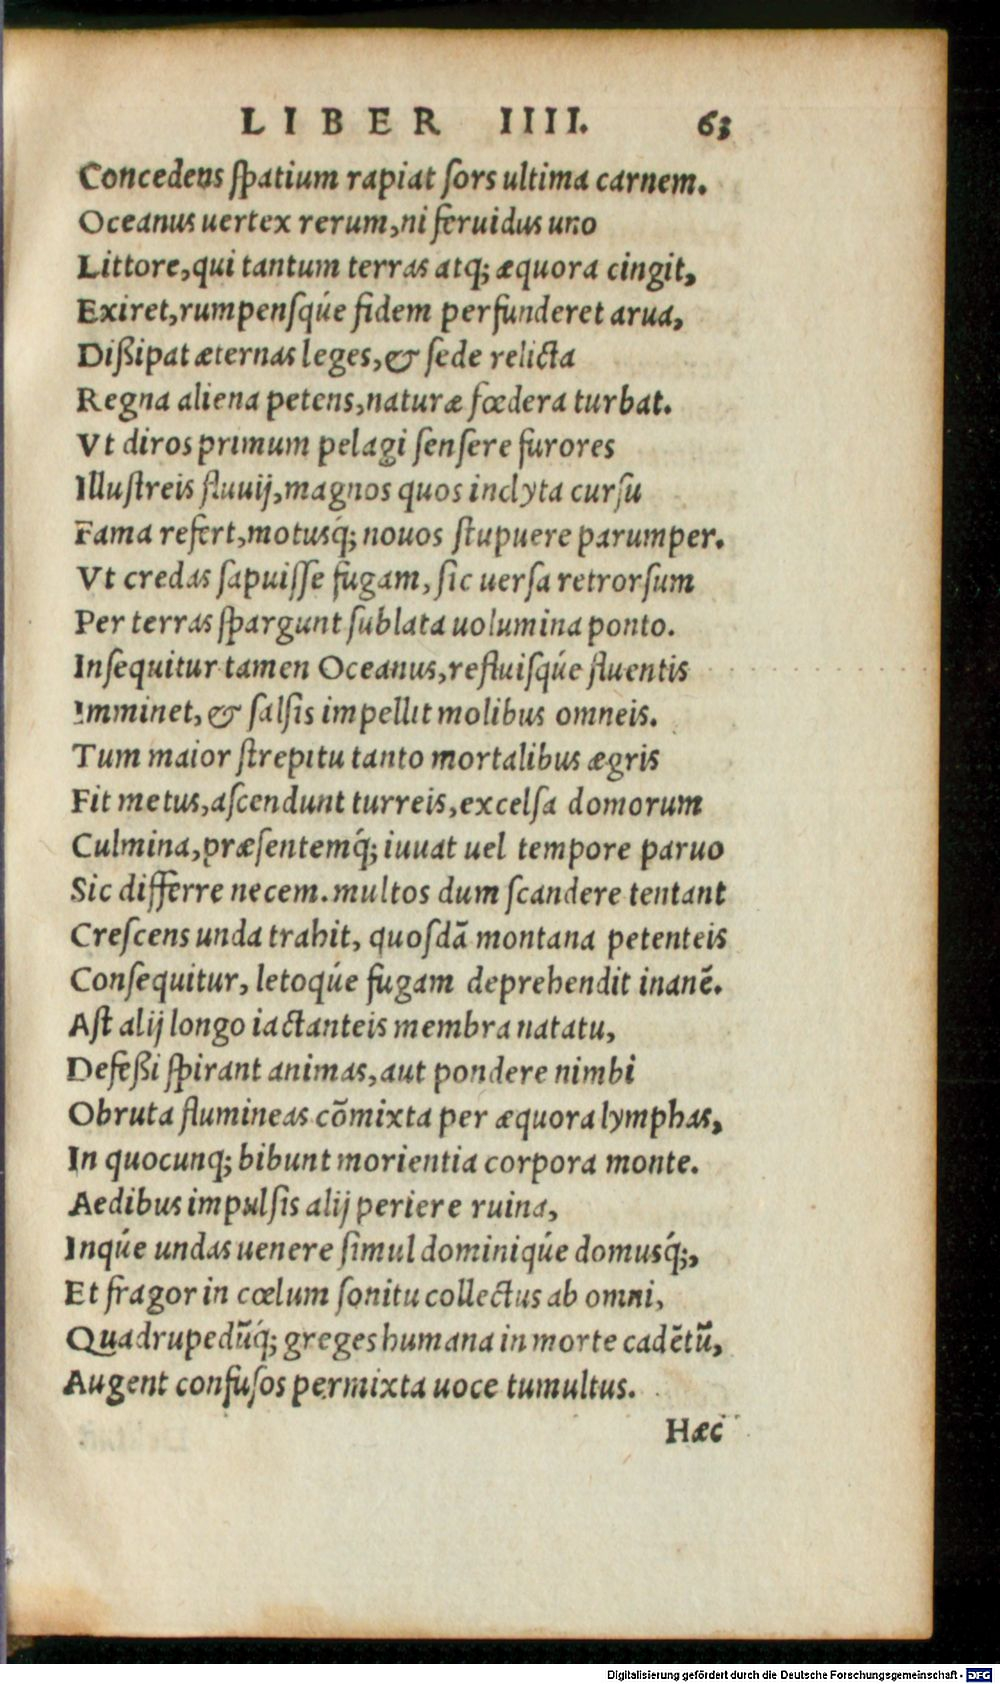 LIBER IIII. 63
Concedens spatium rapiat sors ultima carnem.
Oceanus uertex rerum,ni feruidus uno
Littore,qui tantum terras atq; æquora cingit,
Exiret,rumpensqúe fidem perfunderet arua,
Dißipat æternas leges,& sede relicta
Regna aliena petens,naturæ fœdera turbat.
Vt diros primum pelagi sensere furores
Illustreis fluuij,magnos quos inclyta cursu
Fama refert,motusq́; nouos stupuere parumper.
Vt credas sapuisse fugam, sic uersa retrorsum
Per terras spargunt sublata uolumina ponto.
Insequitur tamen Oceanus,refluisqúe fluentis
Imminet, & salsis impellit molibus omneis.
Tum maior strepitu tanto mortalibus ægris
Fit metus,ascendunt turreis,excelsa domorum
Culmina,præsentemq́; iuuat uel tempore paruo
Sic differre necem. multos dum scandere tentant
Crescens unda trahit, quosdã montana petenteis
Consequitur, letoqúe fugam deprehendit inanẽ.
Ast alij longo iactanteis membra natatu,
Defeßi spirant animas,aut pondere nimbi
Obruta flumineas cõmixta per æquora lymphas,
In quocunq; bibunt morientia corpora monte.
Aedibus impulsis alij periere ruina,
Inqúe undas uenere simul dominiqúe domusq́;,
Et fragor in cœlum sonitu collectus ab omni,
Quadrupedũq́; greges humana in morte cadẽtũ,
Augent confusos permixta uoce tumultus.
Hæc
Digitalisierung gefördert durch die Deutsche Forschungsgemeinschaft - DFG